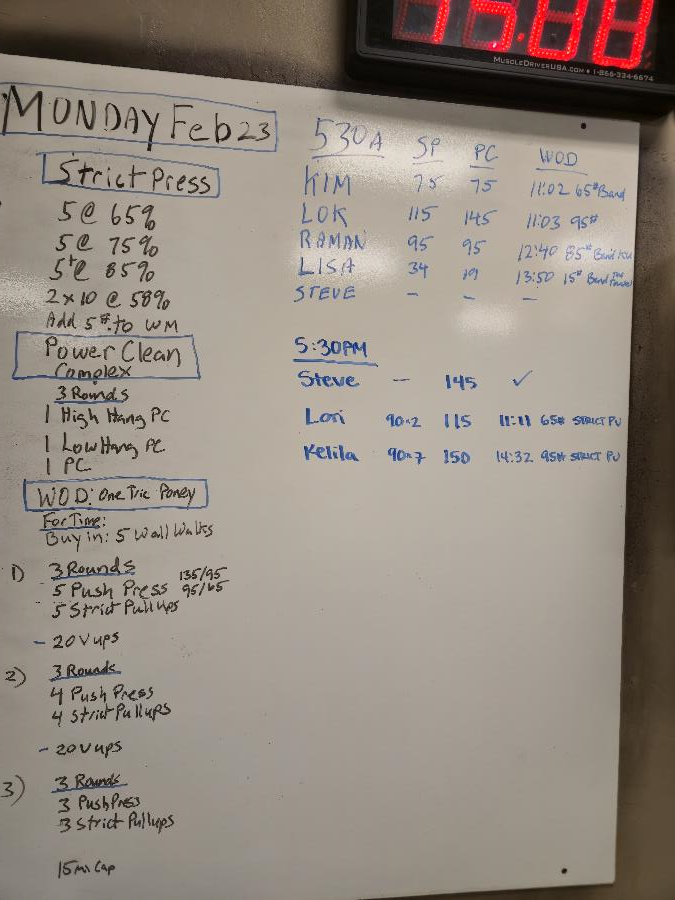 15:00
MUSCLEDRIVERUSA.COM • 1-866-334-6674
MONDAY Feb 23
Strict Press
5 @ 65%
5 @ 75%
5+ @ 85%
2 x 10 @ 58%
Add 5#. to WM
Power Clean
Complex
3 Rounds
1 High Hang PC
1 Low Hang PC
1 PC
WOD: One Tric Poney
For Time:
Buy in: 5 Wall Walks
1) 3 Rounds
5 Push Press 135/95
95/65
5 Strict Pullups
- 20 V ups
2) 3 Rounds
4 Push Press
4 Strict Pullups
- 20 V ups
3) 3 Rounds
3 Push Press
3 Strict Pullups
15 Min Cap
530A SP PC WOD
KIM 75 75 11:02 65# Band
LOK 115 145 11:03 95#
RAMAN 95 95 12:40 85# Band
LISA 34 19 13:50 15# Band
STEVE - - -
5:30PM
Steve - 145 ✓
Lori 90x2 115 11:11 65# STRICT PU
Kelila 90x7 150 14:32 95# STRICT PU